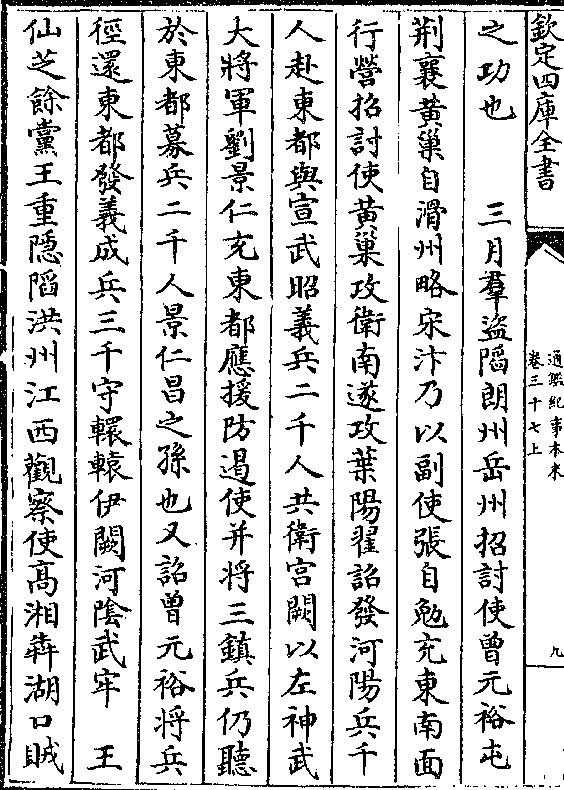 欽定四庫全書
通鑑紀事本末
卷三十七上
九
之功也　三月羣盜䧟朗州岳州招討使曾元裕屯
荆襄黄巢自滑州略宋汴乃以副使張自勉充東南面
行營招討使黄巢攻衛南遂攻葉陽翟詔發河陽兵千
人赴東都與宣武昭義兵二千人共衛宫闕以左神武
大將軍劉景仁充東都應援防遏使并將三鎮兵仍聽
於東都募兵二千人景仁昌之孫也又詔曾元裕將兵
徑還東都發義成兵三千守轘轅伊闕河隂武牢　王
仙芝餘黨王重隱䧟洪州江西觀察使髙湘犇湖口賊